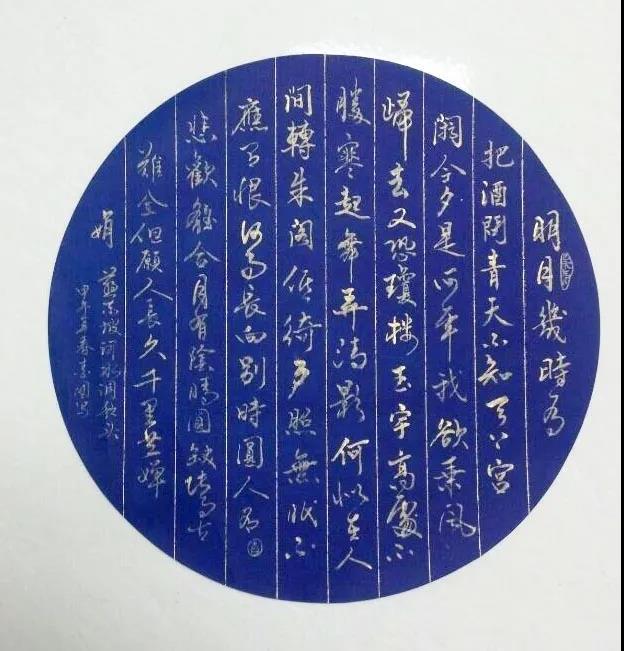 明月幾時有
把酒問青天不知天上宮
闕今夕是何年我欲乘風
歸去又恐瓊樓玉宇高處不
勝寒起舞弄清影何似在人
間轉朱閣低綺戶照無眠不
應有恨何事長向別時圓人有
悲歡離合月有陰晴圓缺此事古
難全但願人長久千里共嬋
娟
蘇東坡詞水調歌頭
甲午